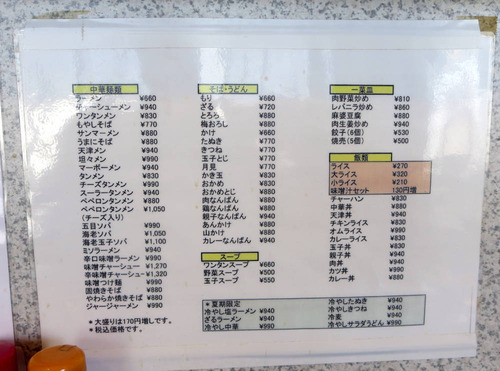 中華麺類
ラーメン ¥660
チャーシューメン ¥940
ワンタンメン ¥830
もやしそば ¥770
サンマーメン ¥880
うまにそば ¥880
天津メン ¥940
坦々メン ¥990
マーボーメン ¥940
タンメン ¥830
チーズタンメン ¥990
スーラータンメン ¥940
ペペロンタンメン ¥990
ペペロンタンメン ¥1,050
(チーズ入り)
五目ソバ ¥990
海老ソバ ¥1,050
海老玉子ソバ ¥1,100
ミソラーメン ¥940
辛口味噌ラーメン ¥990
味噌チャーシュー ¥1,270
辛味噌チャーシュー ¥1,320
味噌つけ麺 ¥990
固焼きそば ¥880
やわらか焼きそば ¥880
ジャージャーメン ¥990
*大盛りは170円増しです。
*税込価格です。
そば・うどん
もり ¥660
ざる ¥720
とろろ ¥880
梅おろし ¥880
かけ ¥660
たぬき ¥770
きつね ¥770
玉子とじ ¥770
月見 ¥770
かき玉 ¥830
おかめ ¥830
おかめとじ ¥880
肉なんばん ¥880
鶏なんばん ¥880
親子なんばん ¥940
あんかけ ¥880
山かけ ¥880
カレーなんばん ¥940
スープ
ワンタンスープ ¥660
野菜スープ ¥500
玉子スープ ¥550
一菜皿
肉野菜炒め ¥810
レバニラ炒め ¥860
麻婆豆腐 ¥880
肉生姜炒め ¥940
餃子(6個) ¥530
焼売(5個) ¥500
飯類
ライス ¥270
大ライス ¥320
小ライス ¥210
味噌汁セット 130円増
チャーハン ¥830
中華丼 ¥880
天津丼 ¥940
チキンライス ¥830
オムライス ¥990
カレーライス ¥830
玉子丼 ¥830
親子丼 ¥940
肉丼 ¥940
カツ丼 ¥990
カレー丼 ¥880
*夏期限定
冷やし塩ラーメン ¥940
ざるラーメン ¥880
冷やし中華 ¥990
冷やしたぬき ¥940
冷やしきつね ¥940
冷麦 ¥940
冷やしサラダうどん ¥990